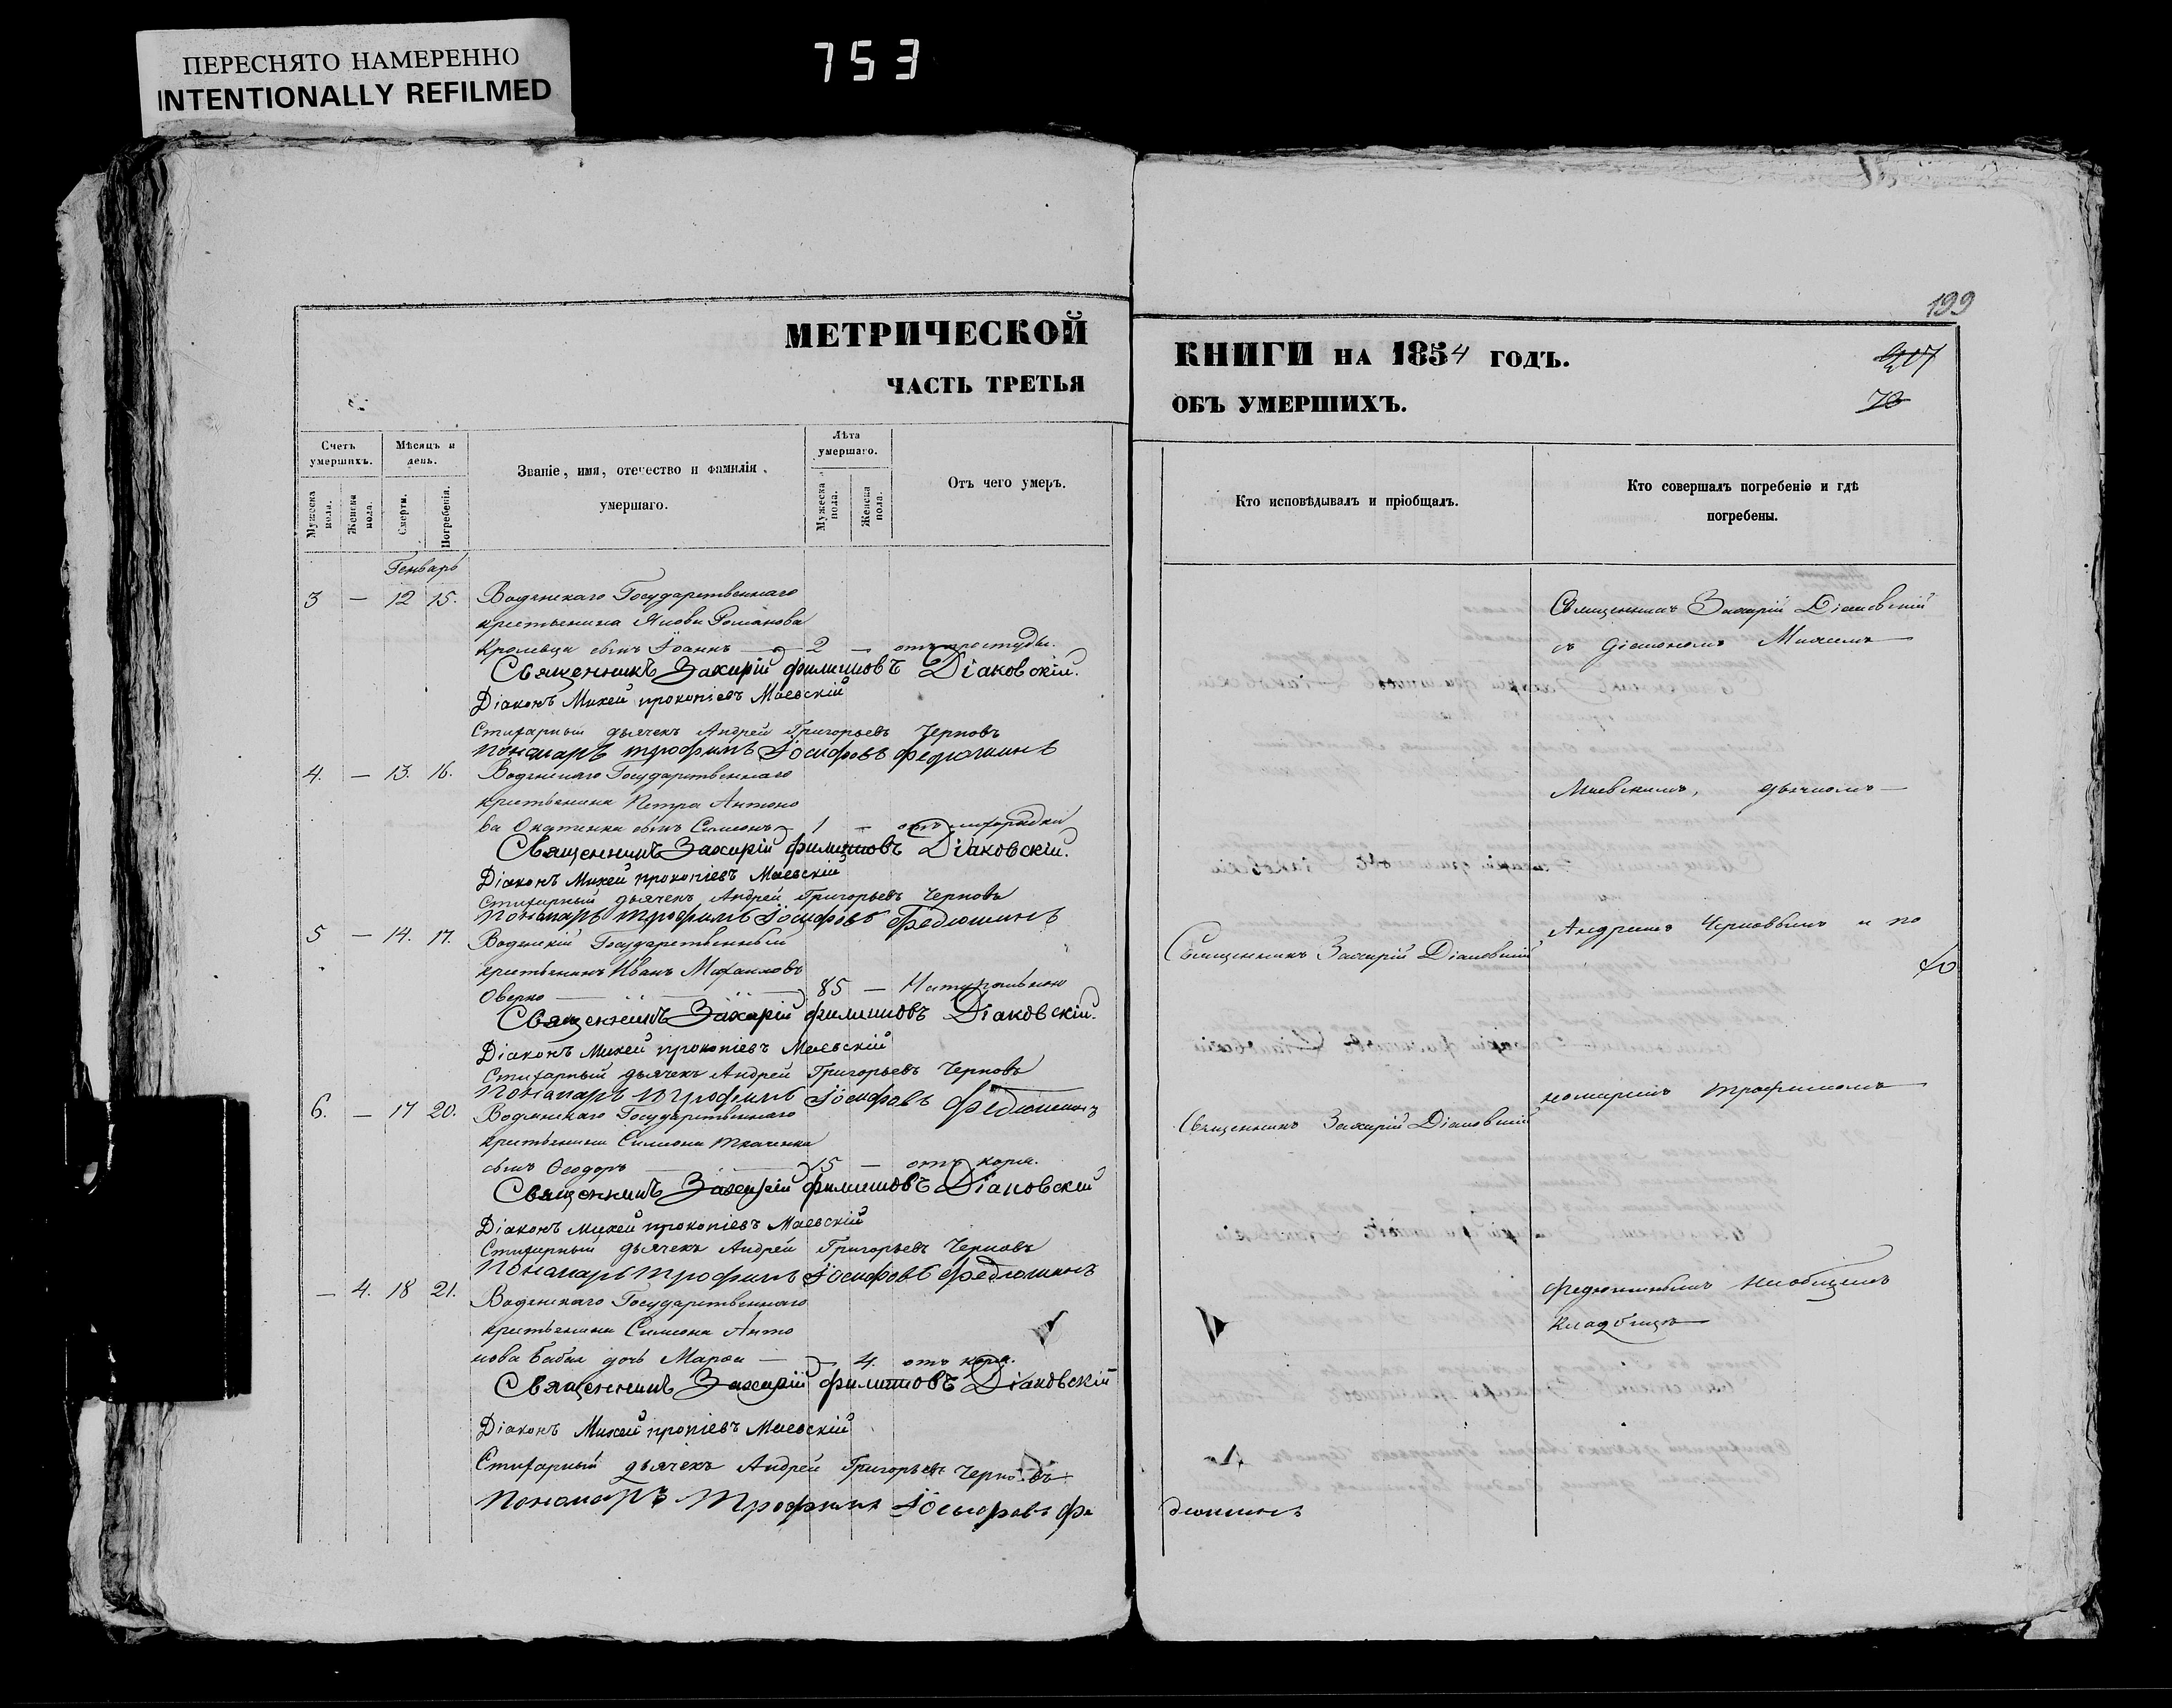 ПЕРЕСНЯТО НАМЕРЕННО
INTENTIONALLY REFILMED
753
МЕТРИЧЕСКОЙ
ЧАСТЬ ТРЕТЬЯ
Счетъ умершихъ.
Мужеска пола.
Женска пола.
Мѣсяцъ и день.
Смерти.
Погребенія.
Званіе, имя, отечество и фамилія
умершаго.
Лѣта умершаго.
Мужеска пола.
Женска пола.
Отъ чего умеръ.
Генварь
3 — 12 15. Водянскаго Государственнаго
крестьянина Якова Романова
Кролевца сынъ Іоаннъ — 2 — отъ простуды.
Священникъ Захарій Филиповъ Діаковскій.
Діаконъ Михей Прокопіевъ Маевскій
Стихарный дьячекъ Андрей Григорьевъ Черновъ
Пономарь Трофимъ Іосифовъ Федюшинъ
4. — 13. 16. Водянскаго Государственнаго
крестьянина Петра Антоно
ва сынъ Симеонъ — 1 — отъ лихорадки
Священникъ Захарій Филиповъ Діаковскій.
Діаконъ Михей Прокопіевъ Маевскій
Стихарный дьячекъ Андрей Григорьевъ Черновъ
Пономарь Трофимъ Іосифовъ Федюшинъ
5 — 14. 17. Водянскій Государственный
крестьянинъ Иванъ Михаиловъ
Оверко — 85 — Натурально
Священникъ Захарій Филиповъ Діаковскій.
Діаконъ Михей Прокопіевъ Маевскій
Стихарный дьячекъ Андрей Григорьевъ Черновъ
Пономарь Трофимъ Іосифовъ Федюшинъ
6. — 17 20. Водянскаго Государственнаго
крестьянина Симеона Ткаченка
сынъ Ѳеодоръ — 15 — отъ коря.
Священникъ Захарій Филиповъ Діаковскій
Діаконъ Михей Прокопіевъ Маевскій
Стихарный дьячекъ Андрей Григорьевъ Черновъ
Пономарь Трофимъ Іосифовъ Федюшинъ
— 4. 18 21. Водянскаго Государственнаго
крестьянина Симеона Анто
нова Бабая дочь Марѳа — — 4. отъ коря.
Священникъ Захарій Филиповъ Діаковскій
Діаконъ Михей Пропіевъ Маевскій
Стихарный дьячекъ Андрей Григорьевъ Черновъ
Пономарь Трофимъ Іосифовъ Фе
199
КНИГИ НА 1854 ГОДЪ.
207
ОБЪ УМЕРШИХЪ.
70
Кто исповѣдывалъ и пріобщалъ.
Кто совершалъ погребеніе и гдѣ
погребены.
Священникъ Захарій Діаковскій
съ діакономъ Михеемъ
Маевскимъ, дьячкомъ
Андреемъ Черновымъ и по
Священникъ Захарій Діаковскій
номаремъ Трофимомъ
Священникъ Захарій Діаковскій
Федюшинымъ на общемъ
кладбищѣ
дюшинъ